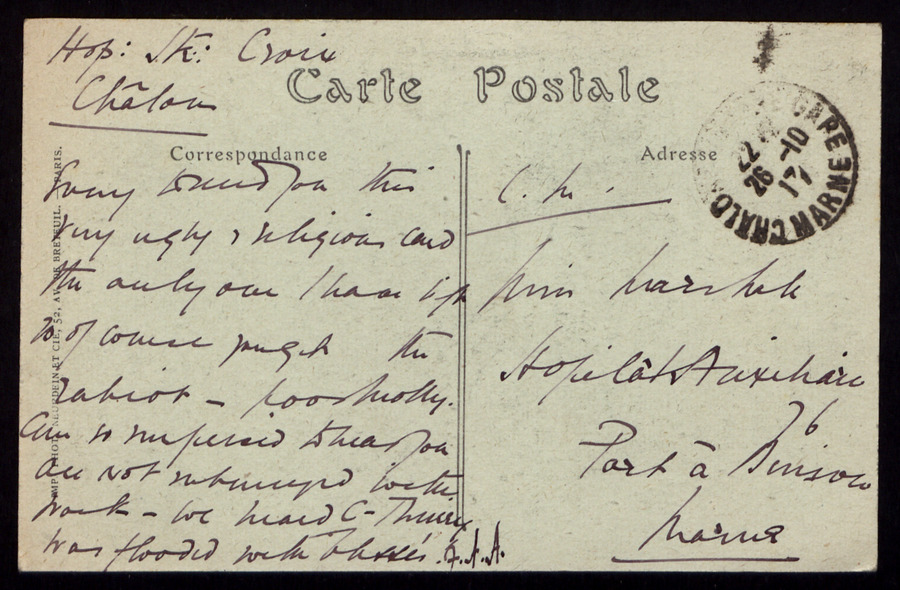 Hop: Ste: Croix
Châlons
Carte Postale
Correspondance
Adresse
Sorry to send you this
very ugly & religious card
the only one I have left
to of course forget the
rabiot - poor Molly.
Am so surprised to hear you
are not submerged with
work - we heard C-Thierry
was flooded with blessés. A.A.A.
C. M.
Miss
Hopital Auxiliaire
76
Port à Binson
Marne
GARE
22
26 -10
17
CHALONS MARNE
IMP. PHOT. NEURDEIN ET CIE, 52, AV. DE BRETEUIL. - PARIS.